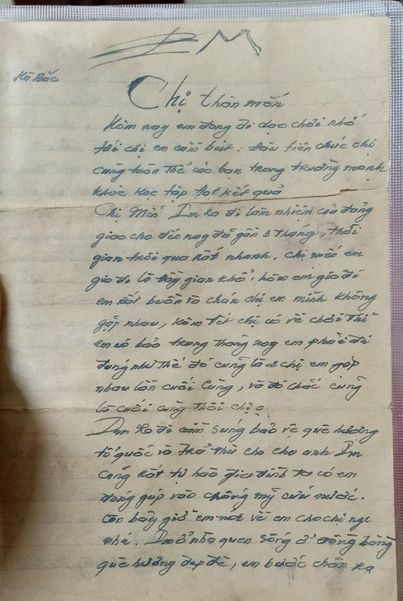 Hà Bắc
Chị thân mến
Hôm nay em đang đi dạo chơi nhớ
tới chị em cầm bút: đầu tiên chúc chị
cùng toàn thể các bạn trong trường mạnh
khỏe học tập tốt kết quả
Chị Mến! Em ra đi làm nhiệm của đảng
giao cho đến nay đã gần 3 tháng, thời
gian trôi qua rất nhanh. Chị mến em
gia đi là đầy gian khổ, hôm em gia đi
em rất buồn và chán chị em mình không
gặp nhau, hôm tết chị có về chơi thì
em có bảo trong tháng này em phải đi
đúng như thế đó cũng là 2 chị em gặp
nhau lần cuối cùng, và đó chắc cũng
là cuối cùng thôi chị ạ
Em ra đi cầm súng bảo vệ quê hương
tổ quốc và trả thù cho cho anh Em
cũng rất tự hào gia đình ta có em
đóng góp vào chống mỹ cứu nước.
Còn bây giờ em nói về em cho chị nge
nhé. Em ở nhà quen sống ở đồng bằng
quê hương đẹp đẽ, em bước chân ra